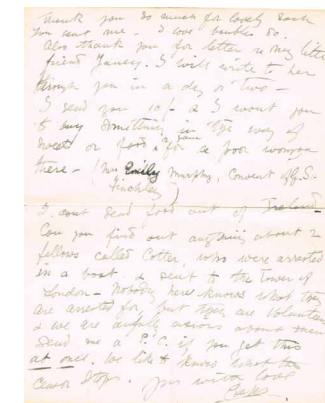 Thank you so much for lovely book
you sent me. I love baubles so.
Also thank you for letter re my little
friend Nancy. I will write to her
through you in a day or two -
I send you 10/- & I want you
to buy something in the way of
sweets or food, for a poor woman
there - (Mrs Emily Murphy, Convent
Finchley)
I can't send food out of Ireland.
Can you find out anything about 2
fellows called Cotter, who were arrested
in a boat & sent to the Tower of
London - Nobody here knows what they
are arrested for, but they are Volunteers
& we are awfully anxious about them
Send me a P.C. if you get this
at once. We like to know what the
Censor stops. Yrs with love